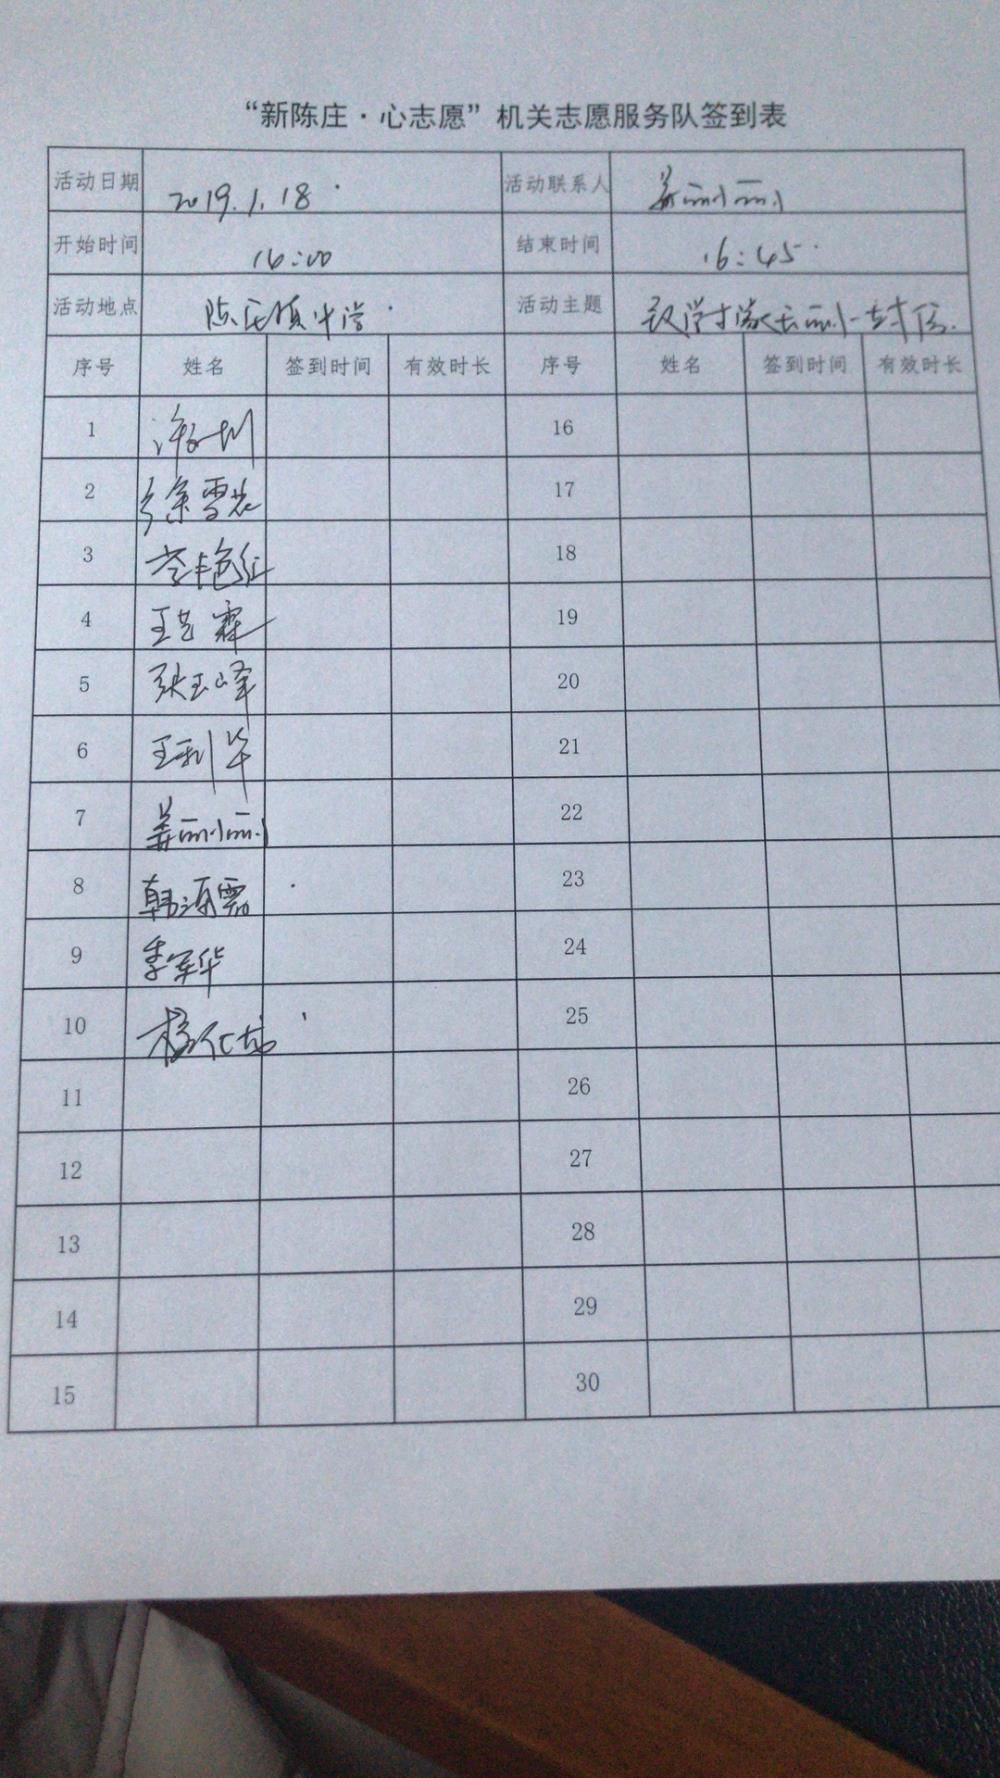 “新陈庄·心志愿”机关志愿服务队签到表
活动日期 2019.1.18 活动联系人 姜丽丽
开始时间 16:00 结束时间 16:45
活动地点 陈庄镇中学 活动主题 致学生家长的一封信
序号 姓名 签到时间 有效时长 序号 姓名 签到时间 有效时长
1 16
2 徐雪 17
3 李艳红 18
4 王艺霖 19
5 张玉峰 20
6 王利华 21
7 姜丽丽 22
8 韩海霞 23
9 李军华 24
10 杨 25
11 26
12 27
13 28
14 29
15 30